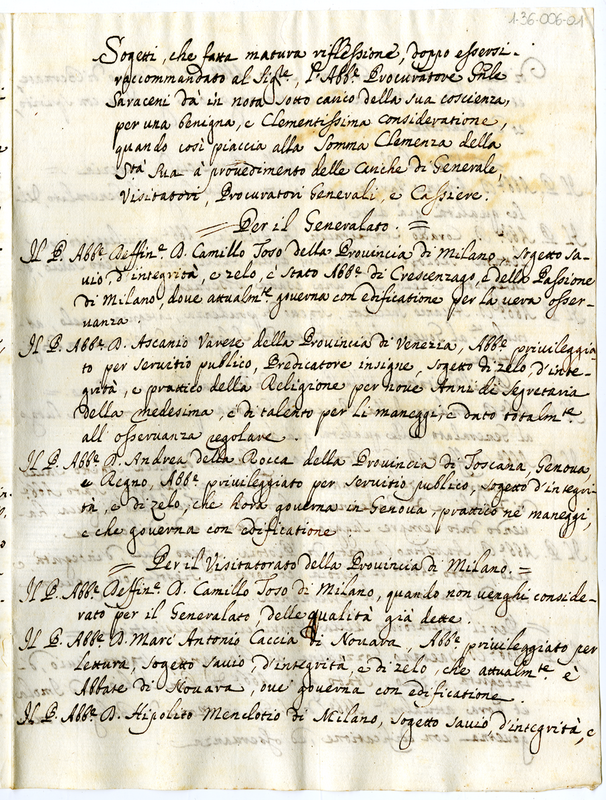 1-36-006-01
Sogetti, che fatta matura riflessione, doppo essersi
raccommandato al Sig.re, l'Abb.e Procuratore Gn̄le
Saraceni dà in nota sotto carico della sua coscienza,
per una benigna, e Clementissima consideratione,
quando così piaccia alla Somma Clemenza della
S.tà Sua à provedimento delle Cariche di Generale,
Visitatori, Procuratori Generali, e Cassiere.
Per il Generalato.
Il P. Abb.e Deffin.e D. Camillo Toso della Provincia di Milano, Sogetto sa-
vio, d'integrità, e zelo, è stato Abb.e di Crescenzago, e della Passione
di Milano, dove attualm.te governa con edificatione per la vera osser-
vanza.
Il P. Abb.e D. Ascanio Varese della Provincia di Venezia, Abb.e privileggia
to per servitio publico, Predicatore insigne, sogetto di zelo, d'inte-
grità, e prattico della Religione per nove Anni di Segretaria
della medesima, e di talento per li maneggi, e dato totalm.te
all'osservanza regolare.
Il P. Abb.e D. Andrea della Rocca della Provincia di Toscana, Genova,
e Regno, Abb.e privileggiato per servitio publico, sogetto d'integri-
tà, e di zelo, che hora governa in Genova, prattico ne maneggi,
e che governa con edificatione.
Per il Visitatorato della Provincia di Milano.
Il P. Abb.e Deffin.e D. Camillo Toso di Milano, quando non venghi conside-
rato per il Generalato, delle qualità già dette.
Il P. Abb.e D. Marc'Antonio Caccia di Novara, Abb.e privileggiato per
lettura, sogetto savio, d'integrità, e di zelo, che attualm.te è
Abbate di Novara, ove governa con edificatione.
Il P. Abb.e D. Hipolito Menclotio di Milano, sogetto savio d'integrità, e